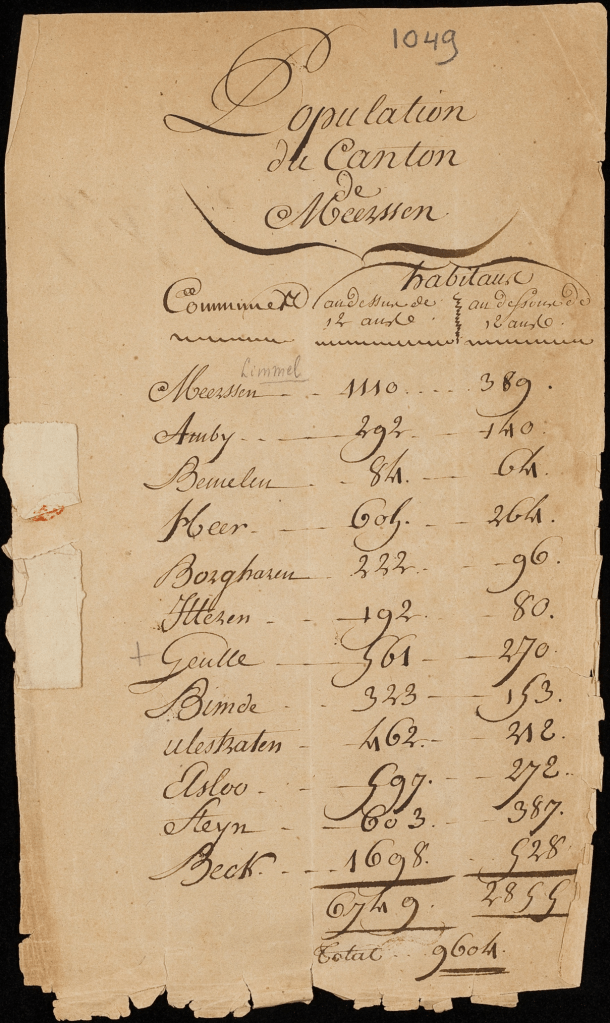 1049
Population
du Canton
de
Meerssen
habitans
Communes au dessus de au dessous de
12 ans. 12 ans.
Limmel
Meerssen 1110 389.
Amby 292 140.
Bemelen 84. 64.
Heer 605. 264.
Borgharen 222 96.
Itteren 192 80.
+ Geulle 561 270
Bunde 323 153.
ulestraten 462. 212.
Elsloo 597. 272.
Steyn 603. 387.
Beek. 1698. 528
6749. 2855
Total 9604.